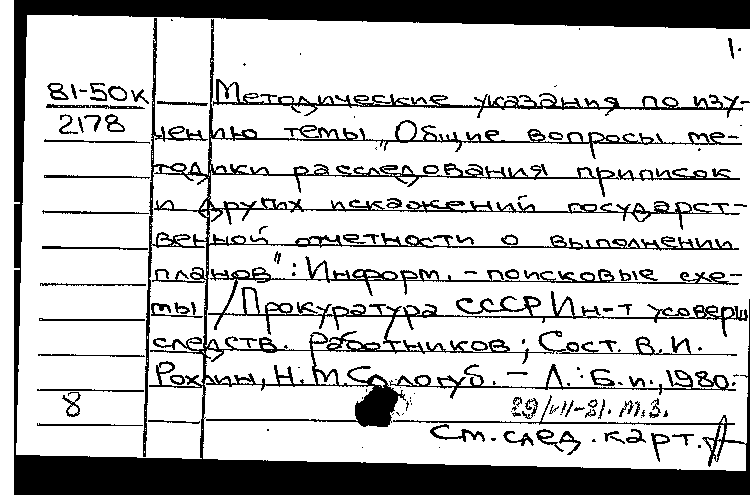 1.
81-50к Методические указания по изу-
2178 чению темы „Общие вопросы ме-
тодики расследования приписок
и других искажений государст-
венной отчетности о выполнении
планов": Информ.-поисковые схе-
мы / Прокуратура СССР, Ин-т усоверш
следств. работников; Сост. В.И.
Рохлин, Н.М. Сологуб. - Л.: Б.и., 1980.-
8 29/VII-81. т.з.
См. след. карт.